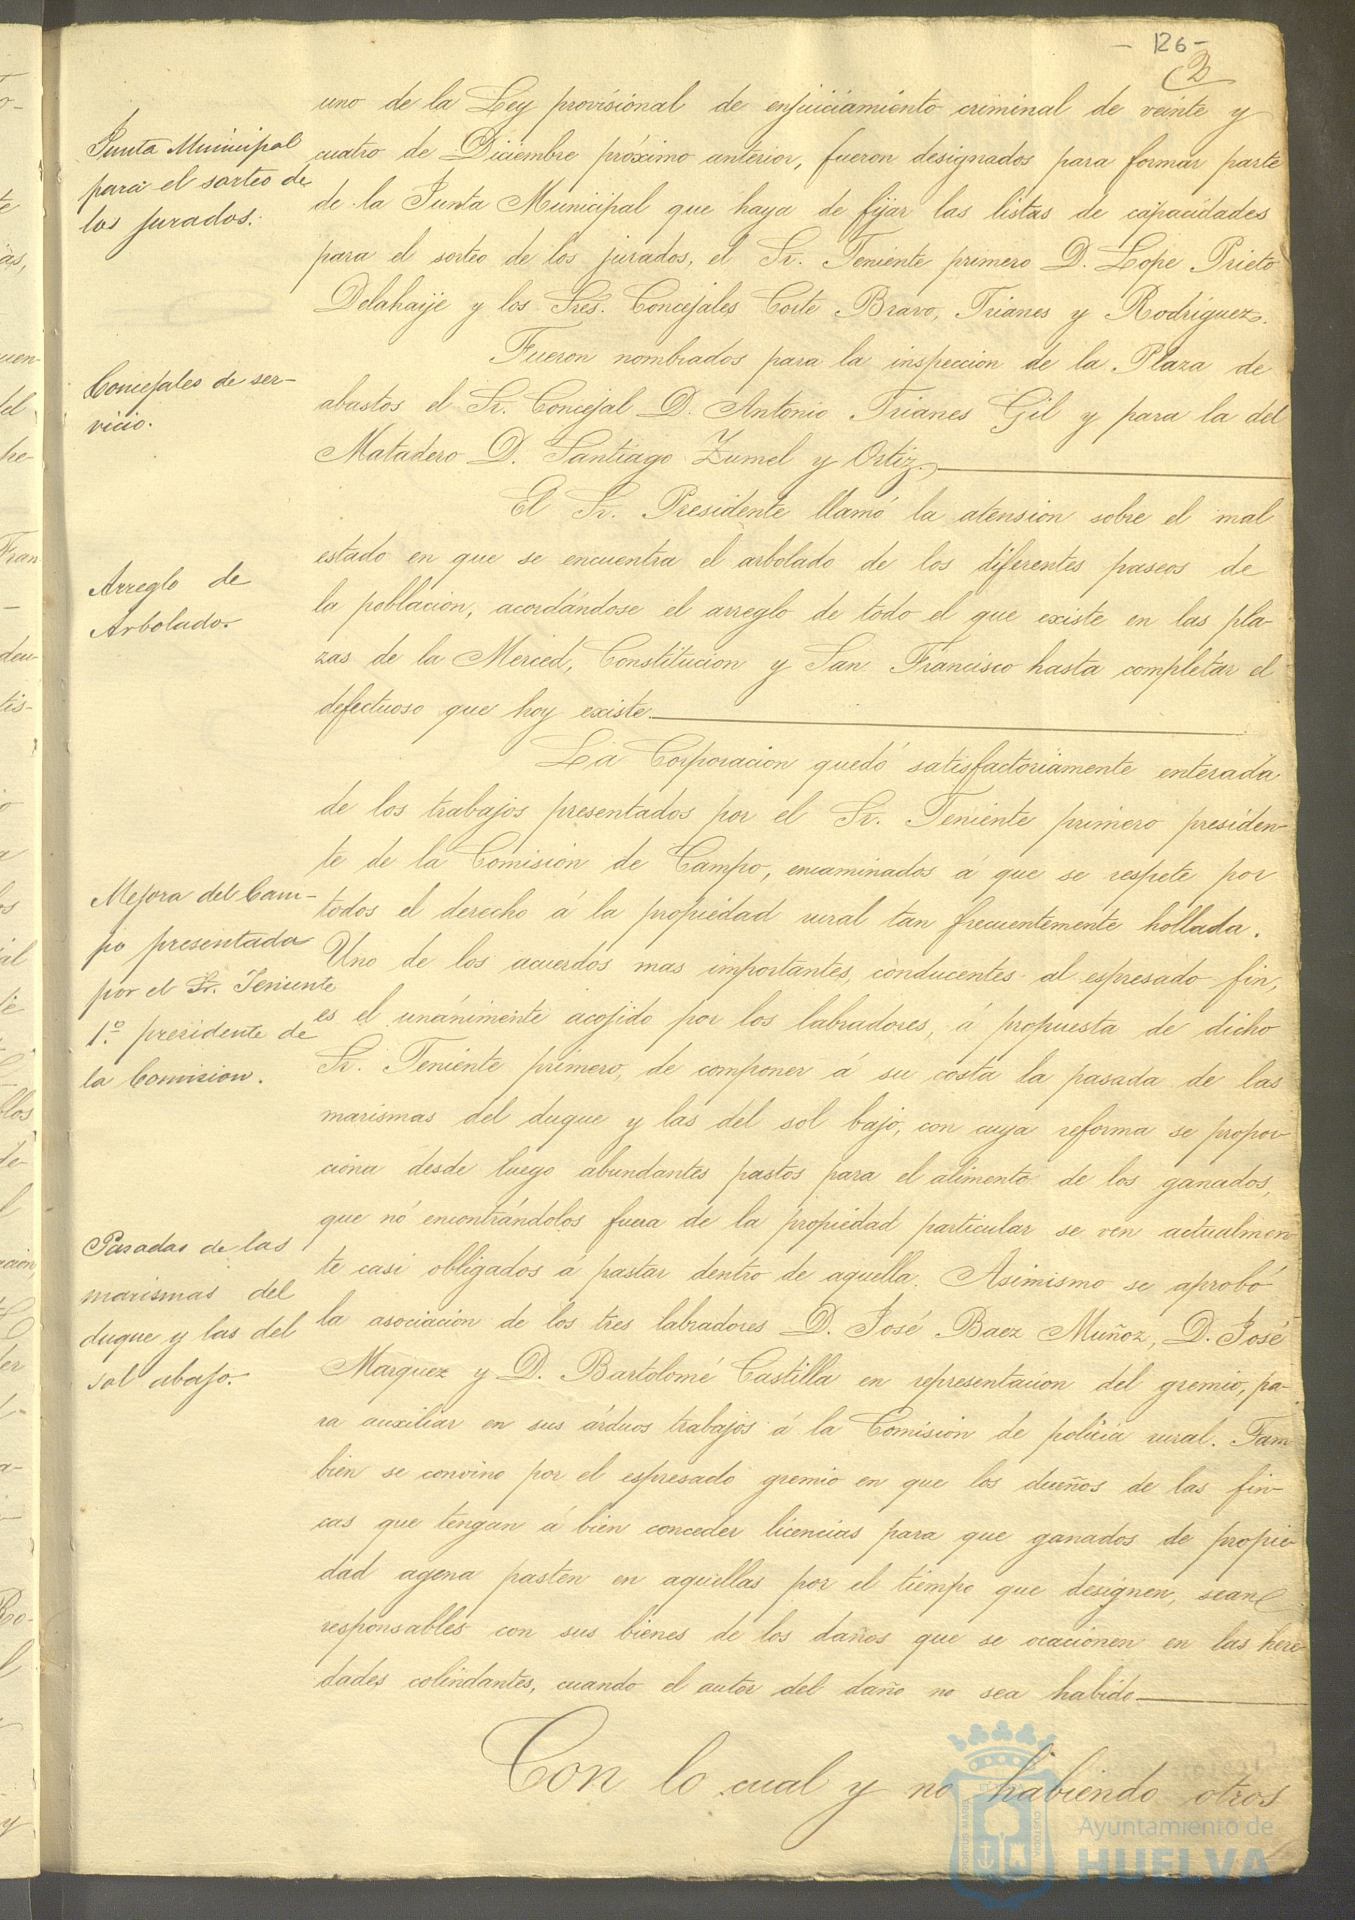 - 126 -
uno de la Ley provisional de enjuiciamiento criminal de veinte y
cuatro de Diciembre próximo anterior, fueron designados para formar parte
de la Junta Municipal que haya de fijar las listas de capacidades
para el sorteo de los jurados, el Sr. Teniente primero D. Lope Prieto
Delahaije y los Sres. Concejales Corte Bravo, Trianes y Rodríguez.
Junta Municipal
para el sorteo de
los jurados.
Fueron nombrados para la inspeccion de la Plaza de
abastos el Sr. Concejal D. Antonio Trianes Gil y para la del
Matadero D. Santiago Zumel y Ortiz.
Concejales de ser-
vicio.
El Sr. Presidente llamó la atension sobre el mal
estado en que se encuentra el arbolado de los diferentes paseos de
la poblacion, acordándose el arreglo de todo el que existe en las pla-
zas de la Merced, Constitucion y San Francisco hasta completar el
defectuoso que hoy existe.
Arreglo de
Arbolado.
La Corporacion quedó satisfactoriamente enterada
de los trabajos presentados por el Sr. Teniente primero presiden-
te de la Comision de Campo, encaminados á que se respete por
todos el derecho á la propiedad rural tan frecuentemente hollada.
Uno de los acuerdos mas importantes, conducentes al espresado fin,
es el unánimente acojido por los labradores, á propuesta de dicho
Sr. Teniente primero, de componer á su costa la pasada de las
marismas del duque y las del sol bajo, con cuya reforma se propor-
ciona desde luego abundantes pastos para el alimento de los ganados,
que nó encontrándolos fuera de la propiedad particular se ven actualmen-
te casi obligados á pastar dentro de aquella. Asimismo se aprobó
la asociacion de los tres labradores D. José Baez Muñoz, D. José
Marquez y D. Bartolomé Castilla en representacion del gremio, pa-
ra auxiliar en sus árduos trabajos á la Comision de policia rural. Tam
bien se convino por el espresado gremio en que los dueños de las fin-
cas que tengan á bien conceder licencias para que ganados de propie-
dad agena pasten en aquellas por el tiempo que designen, sean
responsables con sus bienes de los daños que se ocacionen en las here-
dades colindantes, cuando el autor del daño no sea habido
Mejora del Cam-
po presentada
por el Sr. Teniente
1º. presidente de
la Comision.
Pasadas de las
marismas del
duque y las del
sol abajo.
Con lo cual y no habiendo otros
Ayuntamiento de
HUELVA